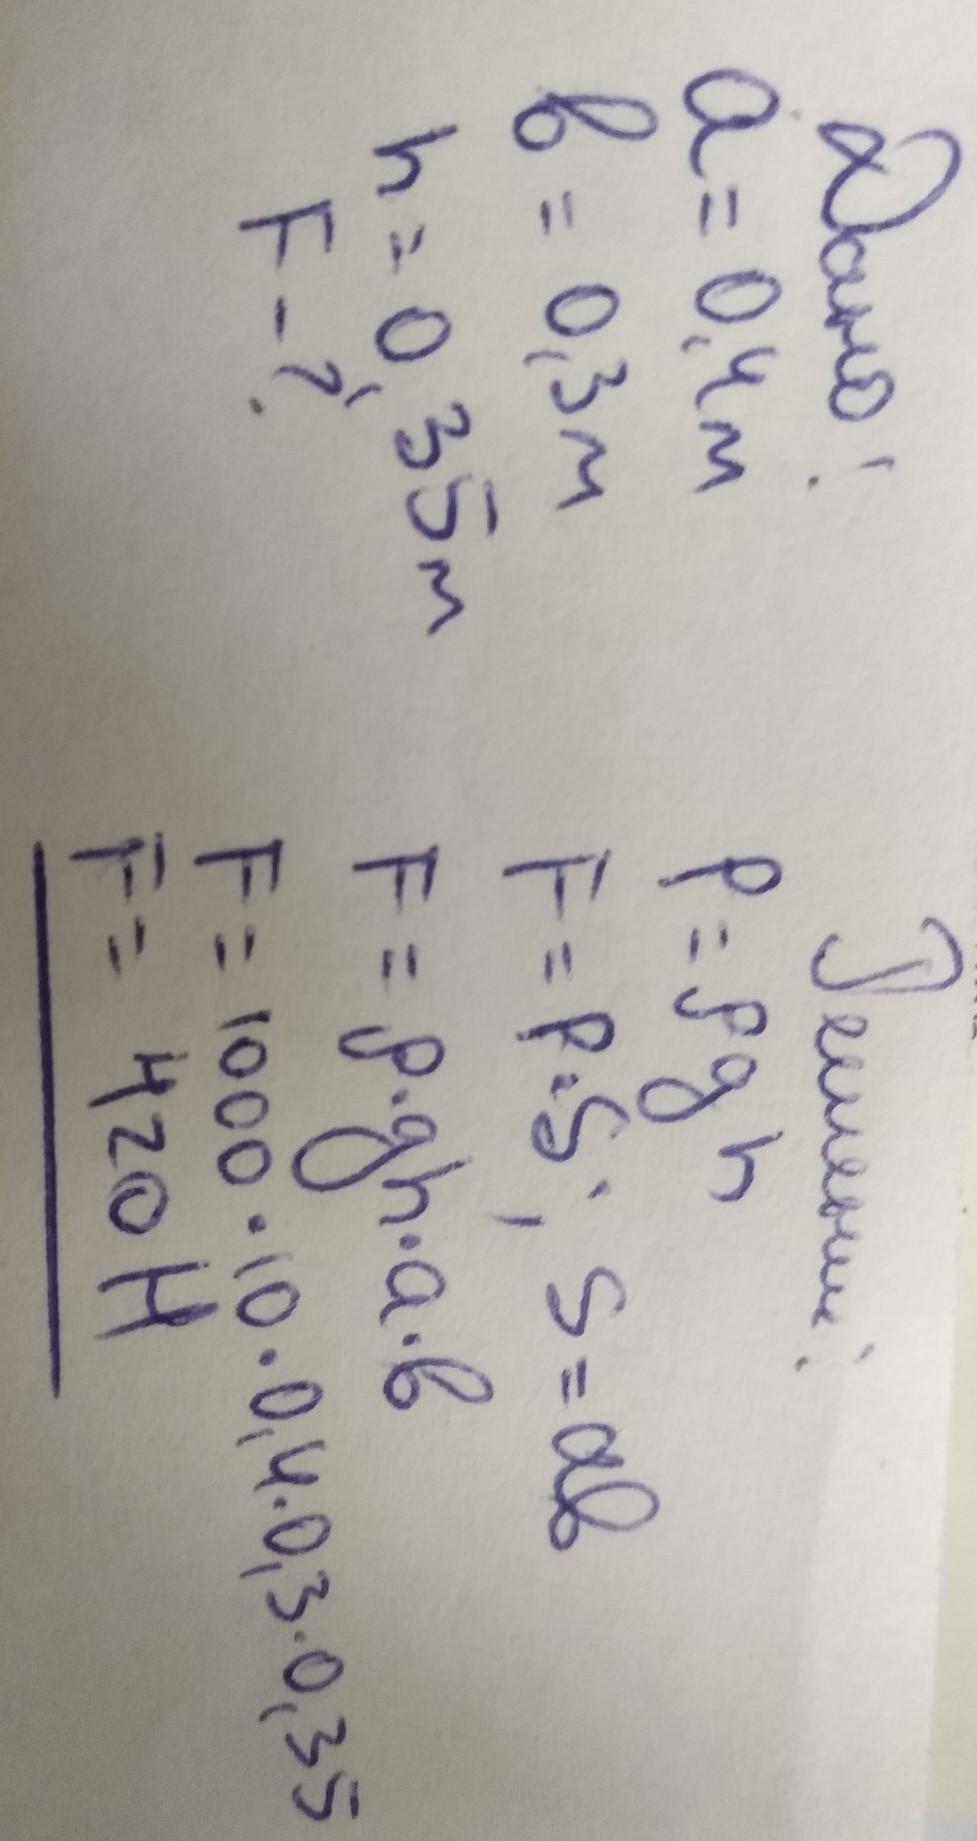 Дано:
a = 0,4 м
b = 0,3 м
h = 0,35 м
F - ?
Решение:
p = ρgh
F = p·S; S = ab
F = ρ·gh·a·b
F = 1000·10·0,4·0,3·0,35
F = 420 Н